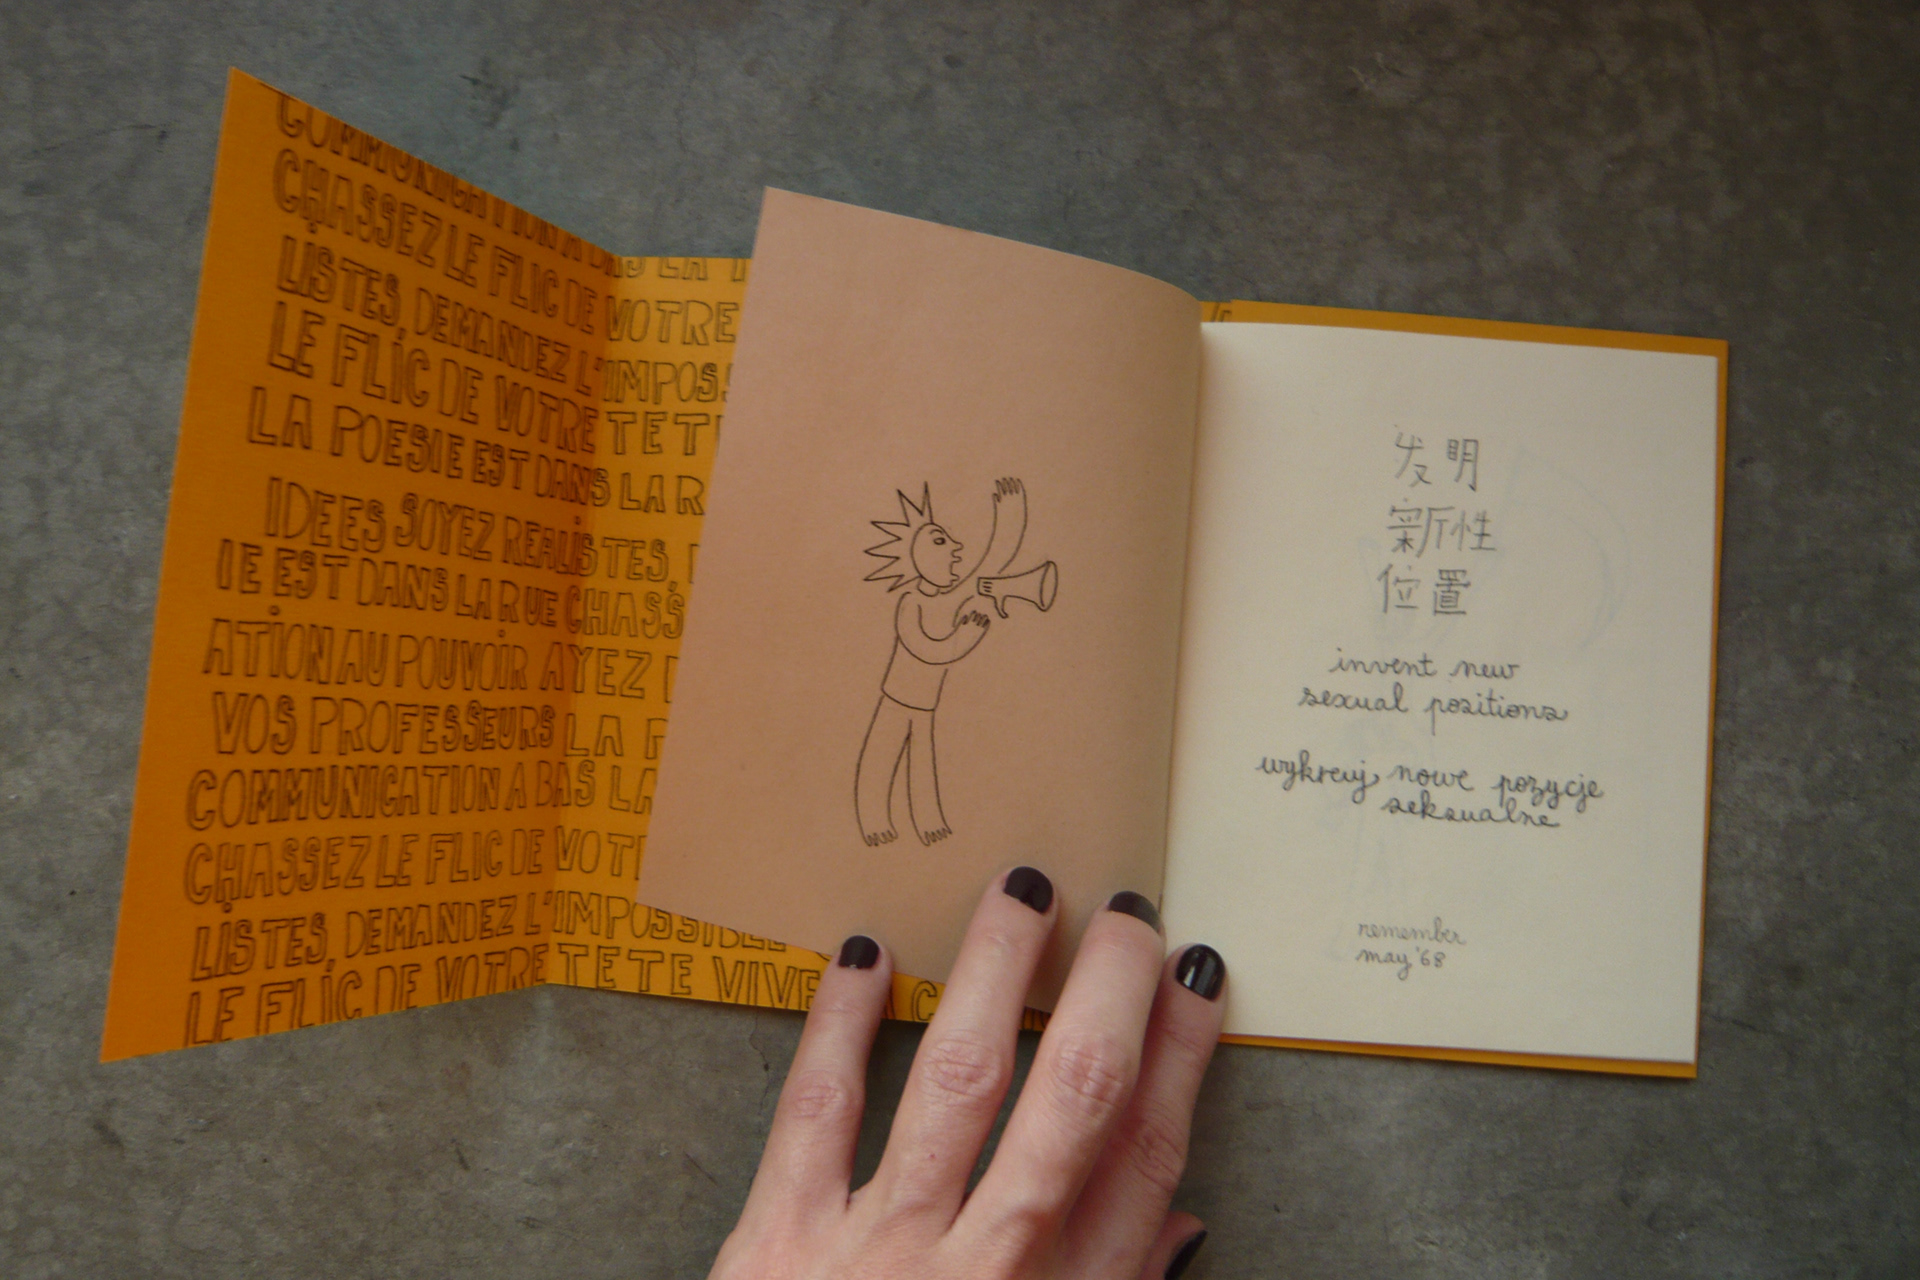 COMMUNICATION A BAS LA
CHASSEZ LE FLIC DE VOTRE
LISTES, DEMANDEZ L'IMPOSS
LE FLIC DE VOTRE TETE
LA POESIE EST DANS LA R
IDEES SOYEZ REALISTES,
IE EST DANS LA RUE CHASS
ATION AU POUVOIR AYEZ
VOS PROFESSEURS LA
COMMUNICATION A BAS LA
CHASSEZ LE FLIC DE VOT
LISTES, DEMANDEZ L'IMPOSSIBLE
LE FLIC DE VOTRE TETE VIVE
发明
新性
位置
invent new
sexual positions
wykreuj nowe pozycje
seksualne
remember
may '68